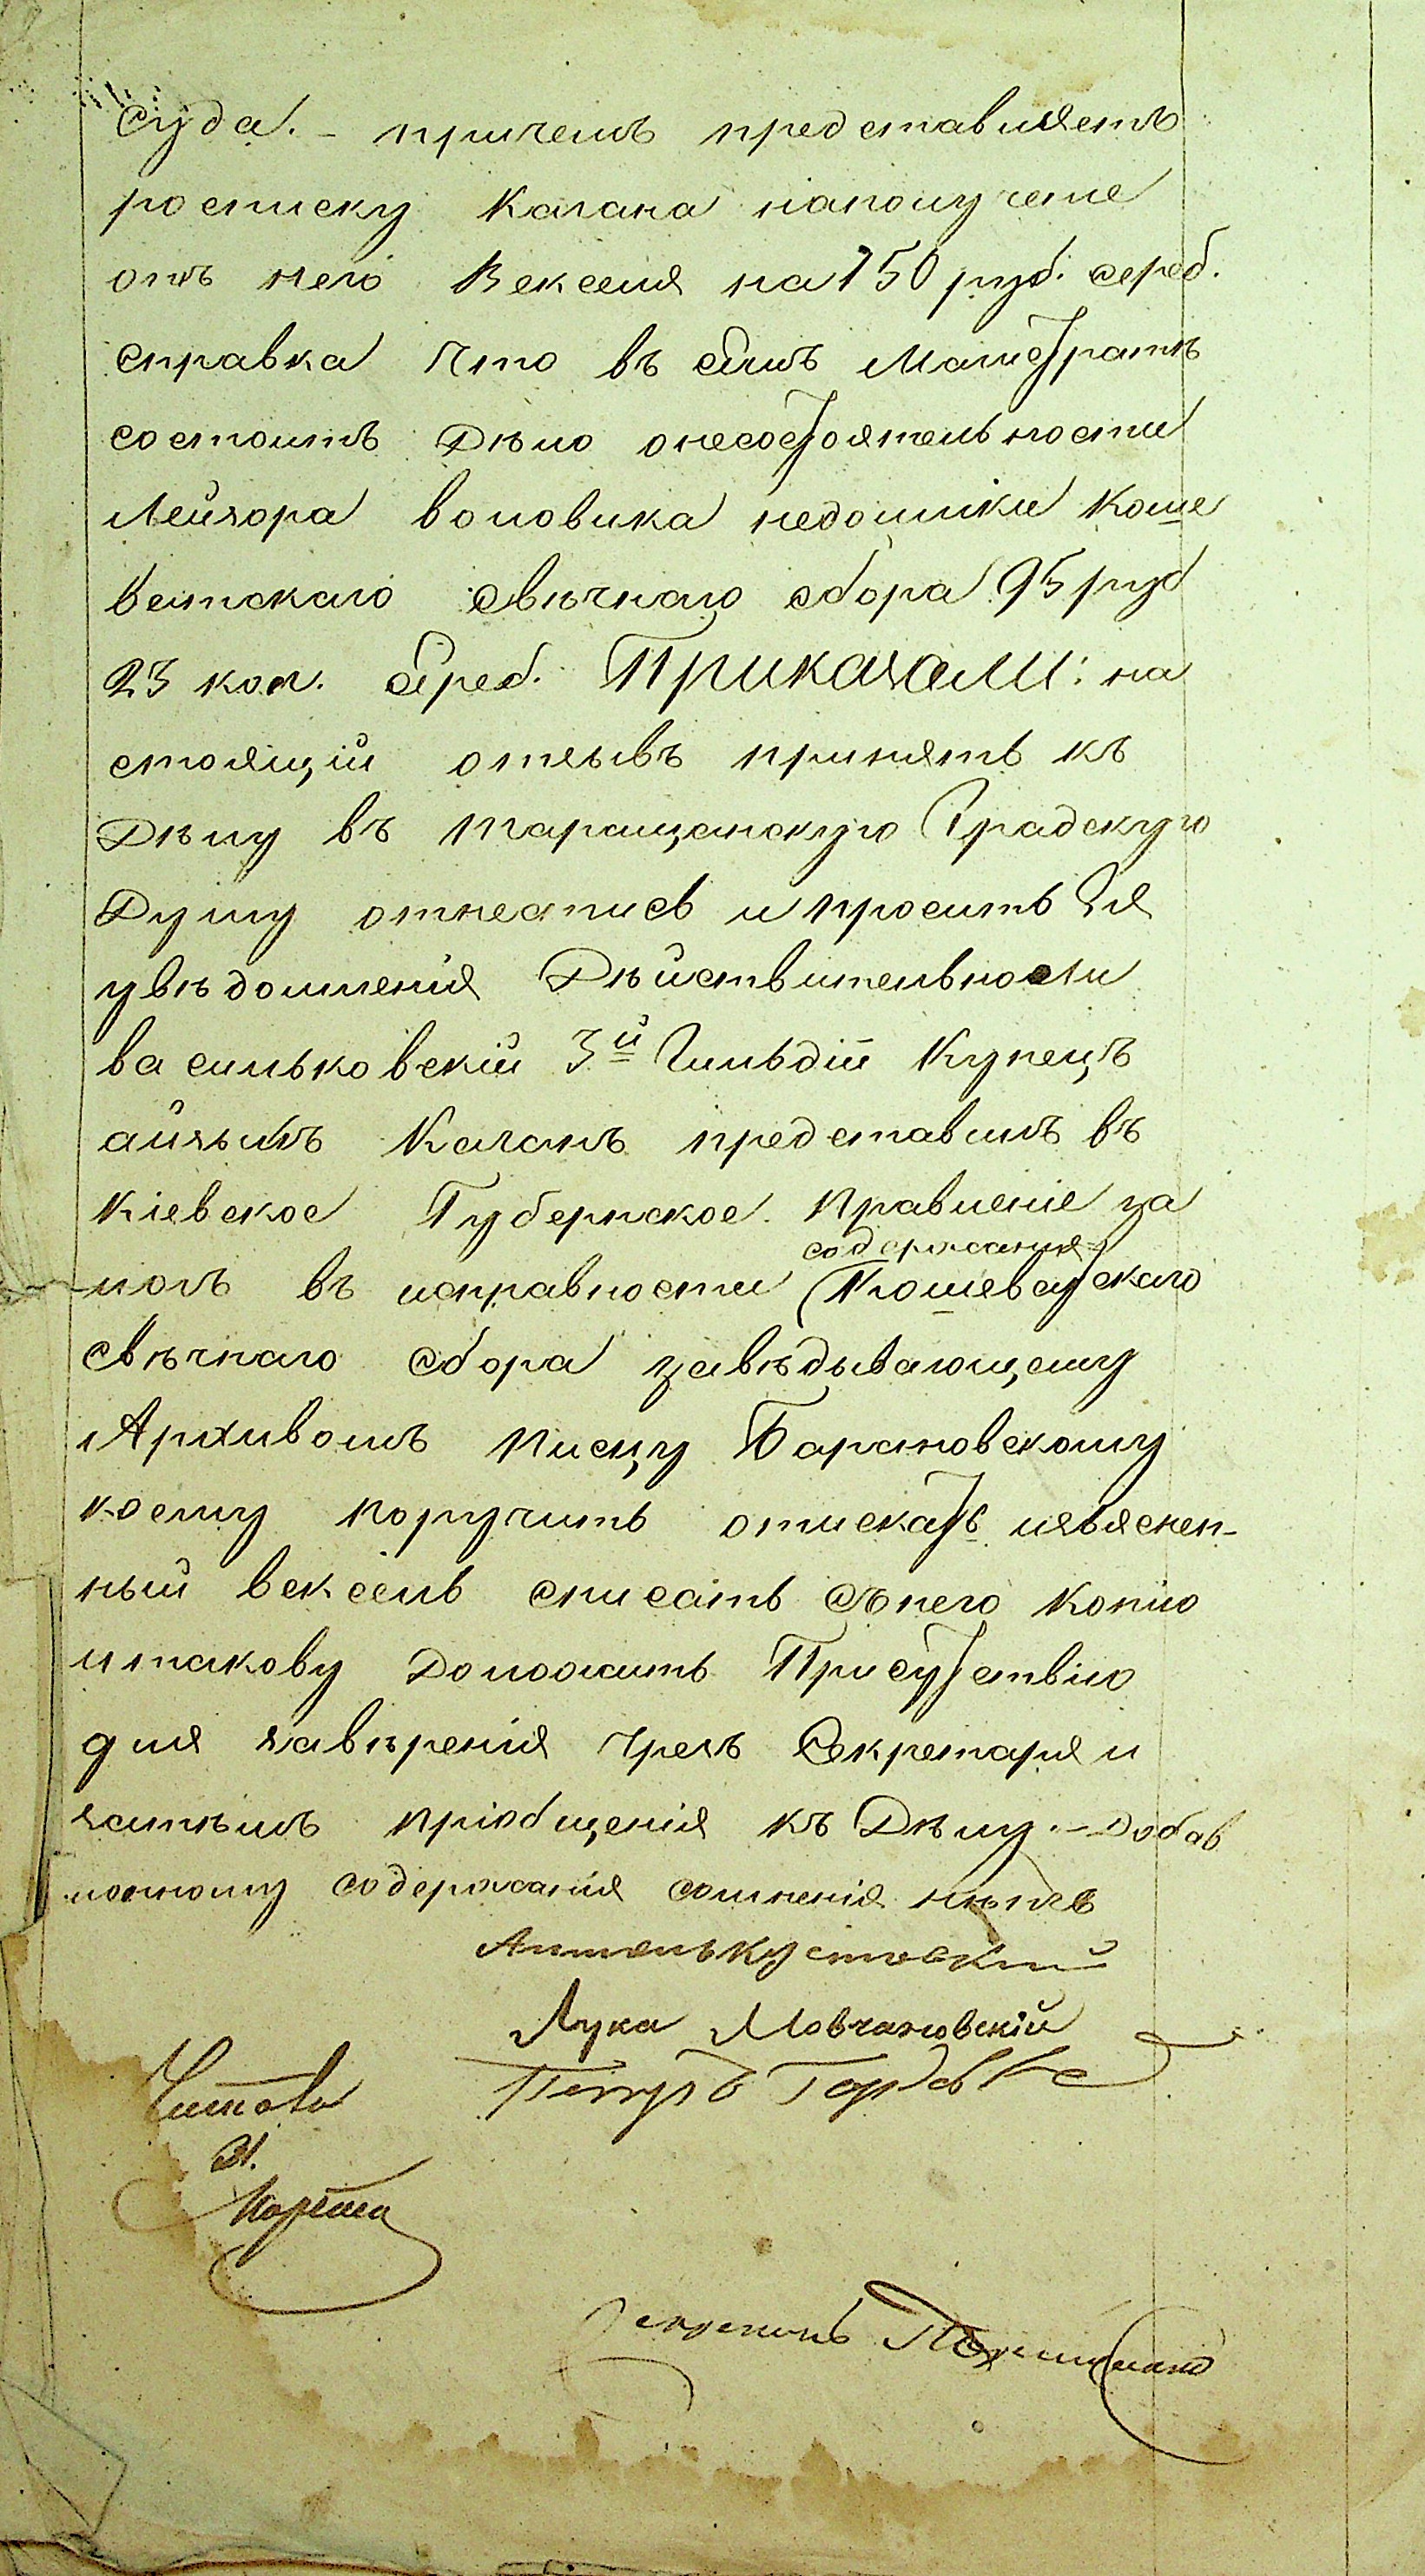 Суда. – причемъ представляетъ
росписку Кагана наполучение
отъ него Векселя на 150 руб. сереб.
справка Что въ семъ Магистратѣ
состоитъ Дѣло онесостоятельности
Лейзора воловика недоимки Коше
ватскаго свѣчнаго сбора 95 руб
23 коп. Сереб. Приказали: на
стоящій отзывъ принять къ
Дѣлу въ Таращанскую Градскую
Думу отнестись и просить Ея
увѣдомленія Дѣйствительности
васильковскій 3й Гильдіи Купецъ
айзыкъ Каганъ представилъ въ
Кіевское Губернское Правленіе за
содержания
логъ въ исправности Кошеватскаго
свѣчнаго сбора завѣдывающему
Архивомъ Писцу Барановскому
коему поручить отискать изъяснен-
ный вексель списать сънего копію
итакову Доложить Присутствію
для завѣренія чрезъ Секретаря и
затѣмъ пріобщенія къ Дѣлу. – Добав
ленному содержанія сомненія нѣтъ
Лука Мовчановскій
Петръ
Читалъ